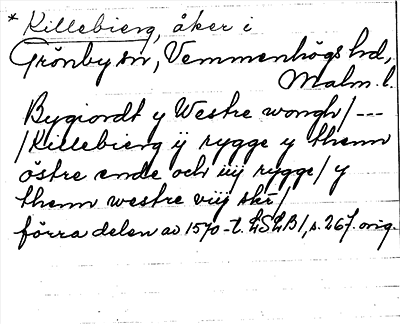 * Killebierg, åker i
Grönby sn, Vemmenhögs hd,
Malm. l.
Bygiordt y Westre wongh/ ---
/Killebierg ÿ rygge y thenn
östre ende och iiij rygge/ y
thenn westre viij skr/
förra delen av 1570-t. LSLB1, s. 267. orig.